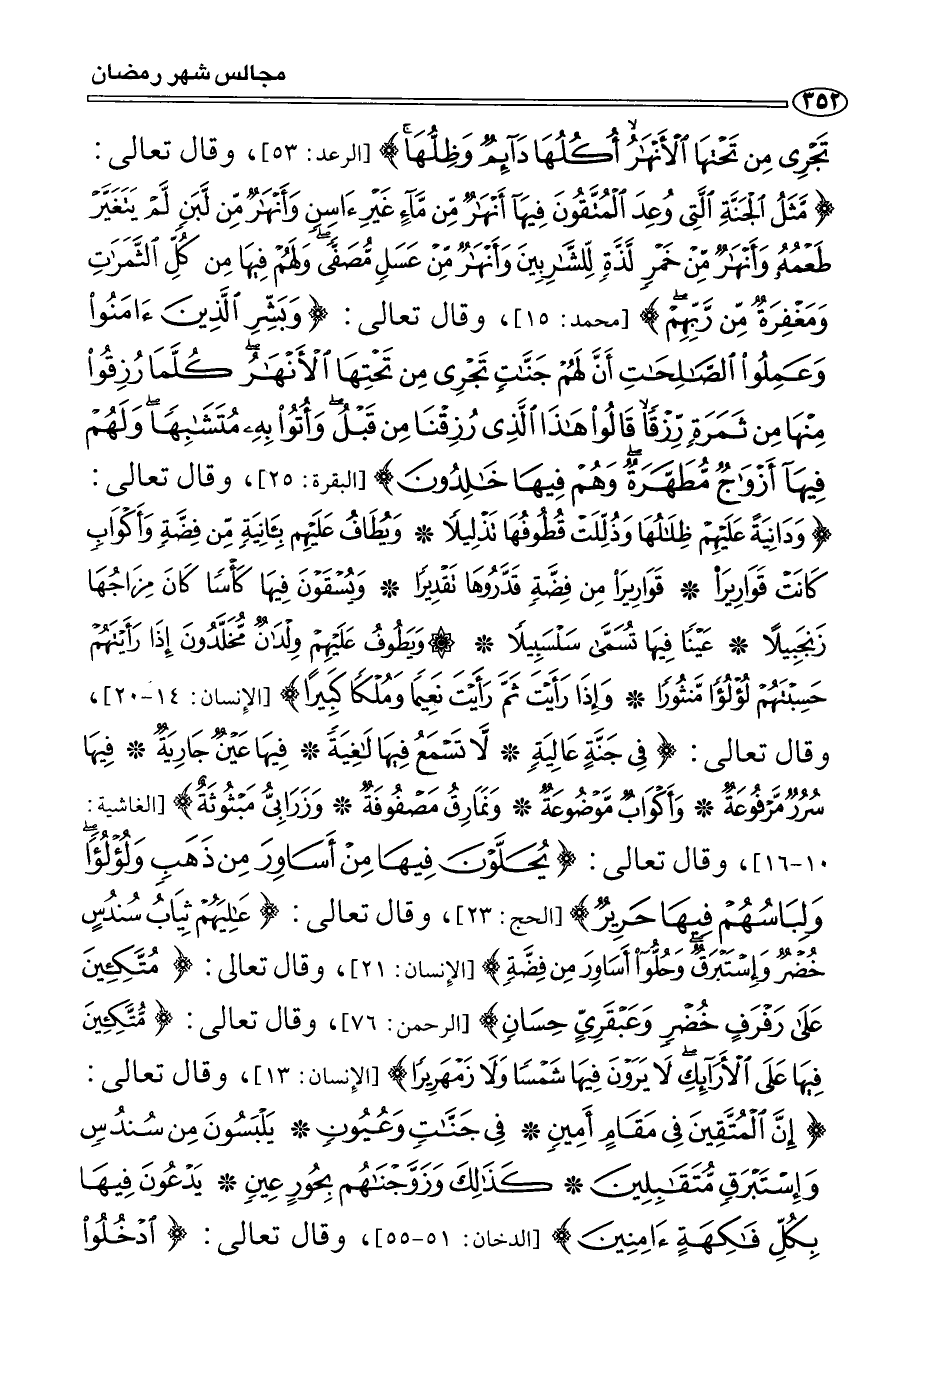 مجالس شهر رمضان
٣٥٢
تَجْرِى مِن تَحْتِهَا ٱلْأَنْهَـٰرُ ۖ أُكُلُهَا دَآئِمٌ وَظِلُّهَا ۚ﴾ [الرعد: ٥٣]، وقال تعالى:
﴿مَّثَلُ ٱلْجَنَّةِ ٱلَّتِى وُعِدَ ٱلْمُتَّقُونَ فِيهَآ أَنْهَـٰرٌ مِّن مَّآءٍ غَيْرِ ءَاسِنٍ وَأَنْهَـٰرٌ مِّن لَّبَنٍ لَّمْ يَتَغَيَّرْ
طَعْمُهُۥ وَأَنْهَـٰرٌ مِّنْ خَمْرٍ لَّذَّةٍ لِّلشَّـٰرِبِينَ وَأَنْهَـٰرٌ مِّنْ عَسَلٍ مُّصَفًّى ۖ وَلَهُمْ فِيهَا مِن كُلِّ ٱلثَّمَرَٰتِ
وَمَغْفِرَةٌ مِّن رَّبِّهِمْ ۖ﴾ [محمد: ١٥]، وقال تعالى: ﴿وَبَشِّرِ ٱلَّذِينَ ءَامَنُوا۟
وَعَمِلُوا۟ ٱلصَّـٰلِحَـٰتِ أَنَّ لَهُمْ جَنَّـٰتٍ تَجْرِى مِن تَحْتِهَا ٱلْأَنْهَـٰرُ ۖ كُلَّمَا رُزِقُوا۟
مِنْهَا مِن ثَمَرَةٍ رِّزْقًا ۙ قَالُوا۟ هَـٰذَا ٱلَّذِى رُزِقْنَا مِن قَبْلُ ۖ وَأُتُوا۟ بِهِۦ مُتَشَـٰبِهًا ۖ وَلَهُمْ
فِيهَآ أَزْوَٰجٌ مُّطَهَّرَةٌ ۖ وَهُمْ فِيهَا خَـٰلِدُونَ﴾ [البقرة: ٢٥]، وقال تعالى:
﴿وَدَانِيَةً عَلَيْهِمْ ظِلَـٰلُهَا وَذُلِّلَتْ قُطُوفُهَا تَذْلِيلًا * وَيُطَافُ عَلَيْهِم بِـَٔانِيَةٍ مِّن فِضَّةٍ وَأَكْوَابٍ
كَانَتْ قَوَارِيرَا۠ * قَوَارِيرَا۟ مِن فِضَّةٍ قَدَّرُوهَا تَقْدِيرًا * وَيُسْقَوْنَ فِيهَا كَأْسًا كَانَ مِزَاجُهَا
زَنجَبِيلًا * عَيْنًا فِيهَا تُسَمَّىٰ سَلْسَبِيلًا * ۞ وَيَطُوفُ عَلَيْهِمْ وِلْدَٰنٌ مُّخَلَّدُونَ إِذَا رَأَيْتَهُمْ
حَسِبْتَهُمْ لُؤْلُؤًا مَّنثُورًا * وَإِذَا رَأَيْتَ ثَمَّ رَأَيْتَ نَعِيمًا وَمُلْكًا كَبِيرًا﴾ [الإنسان: ١٤-٢٠]،
وقال تعالى: ﴿فِى جَنَّةٍ عَالِيَةٍ * لَّا تَسْمَعُ فِيهَا لَـٰغِيَةً * فِيهَا عَيْنٌ جَارِيَةٌ * فِيهَا
سُرُرٌ مَّرْفُوعَةٌ * وَأَكْوَابٌ مَّوْضُوعَةٌ * وَنَمَارِقُ مَصْفُوفَةٌ * وَزَرَابِىُّ مَبْثُوثَةٌ﴾ [الغاشية:
١٠-١٦]، وقال تعالى: ﴿يُحَلَّوْنَ فِيهَا مِنْ أَسَاوِرَ مِن ذَهَبٍ وَلُؤْلُؤًا ۖ
وَلِبَاسُهُمْ فِيهَا حَرِيرٌ﴾ [الحج: ٢٣]، وقال تعالى: ﴿عَـٰلِيَهُمْ ثِيَابُ سُندُسٍ
خُضْرٌ وَإِسْتَبْرَقٌ ۖ وَحُلُّوٓا۟ أَسَاوِرَ مِن فِضَّةٍ﴾ [الإنسان: ٢١]، وقال تعالى: ﴿مُتَّكِـِٔينَ
عَلَىٰ رَفْرَفٍ خُضْرٍ وَعَبْقَرِىٍّ حِسَانٍ﴾ [الرحمن: ٧٦]، وقال تعالى: ﴿مُّتَّكِـِٔينَ
فِيهَا عَلَى ٱلْأَرَآئِكِ ۖ لَا يَرَوْنَ فِيهَا شَمْسًا وَلَا زَمْهَرِيرًا﴾ [الإنسان: ١٣]، وقال تعالى:
﴿إِنَّ ٱلْمُتَّقِينَ فِى مَقَامٍ أَمِينٍ * فِى جَنَّـٰتٍ وَعُيُونٍ * يَلْبَسُونَ مِن سُندُسٍ
وَإِسْتَبْرَقٍ مُّتَقَـٰبِلِينَ * كَذَٰلِكَ وَزَوَّجْنَـٰهُم بِحُورٍ عِينٍ * يَدْعُونَ فِيهَا
بِكُلِّ فَـٰكِهَةٍ ءَامِنِينَ﴾ [الدخان: ٥١-٥٥]، وقال تعالى: ﴿ٱدْخُلُوا۟